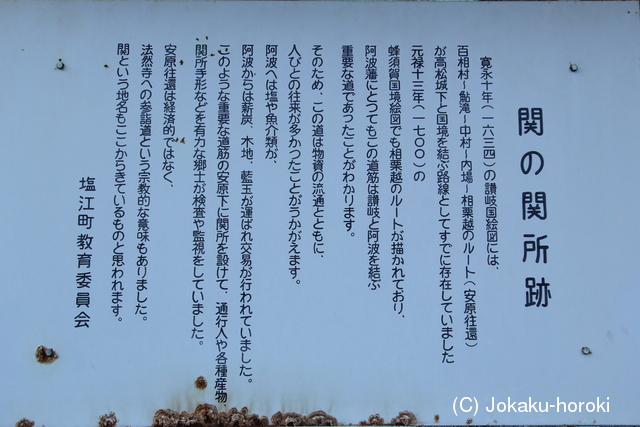 関の関所跡
寛永十年（一六三四）の讃岐国絵図には、
百相村〜鮎滝〜中村〜内場〜相栗越のルート（安原往還）
が高松城下と国境を結ぶ路線としてすでに存在していました
元禄十三年（一七〇〇）の
蜂須賀国境絵図でも相栗越のルートが描かれており、
阿波藩にとってもこの道筋は讃岐と阿波を結ぶ
重要な道であったことがわかります。
そのため、この道は物資の流通とともに、
人びとの往来が多かったことがうかがえます。
阿波へは塩や魚介類が、
阿波からは薪炭、木地、藍玉が運ばれ交易が行われていました。
このような重要な道筋の安原下に関所を設けて、通行人や各種産物、
関所手形などを有力な郷士が検査や監視をしていました。
安原往還は経済的ではなく、
法然寺への参詣道という宗教的な意味もありました。
関という地名もここからきているものと思われます。
塩江町教育委員会
(C) Jokaku-horoki